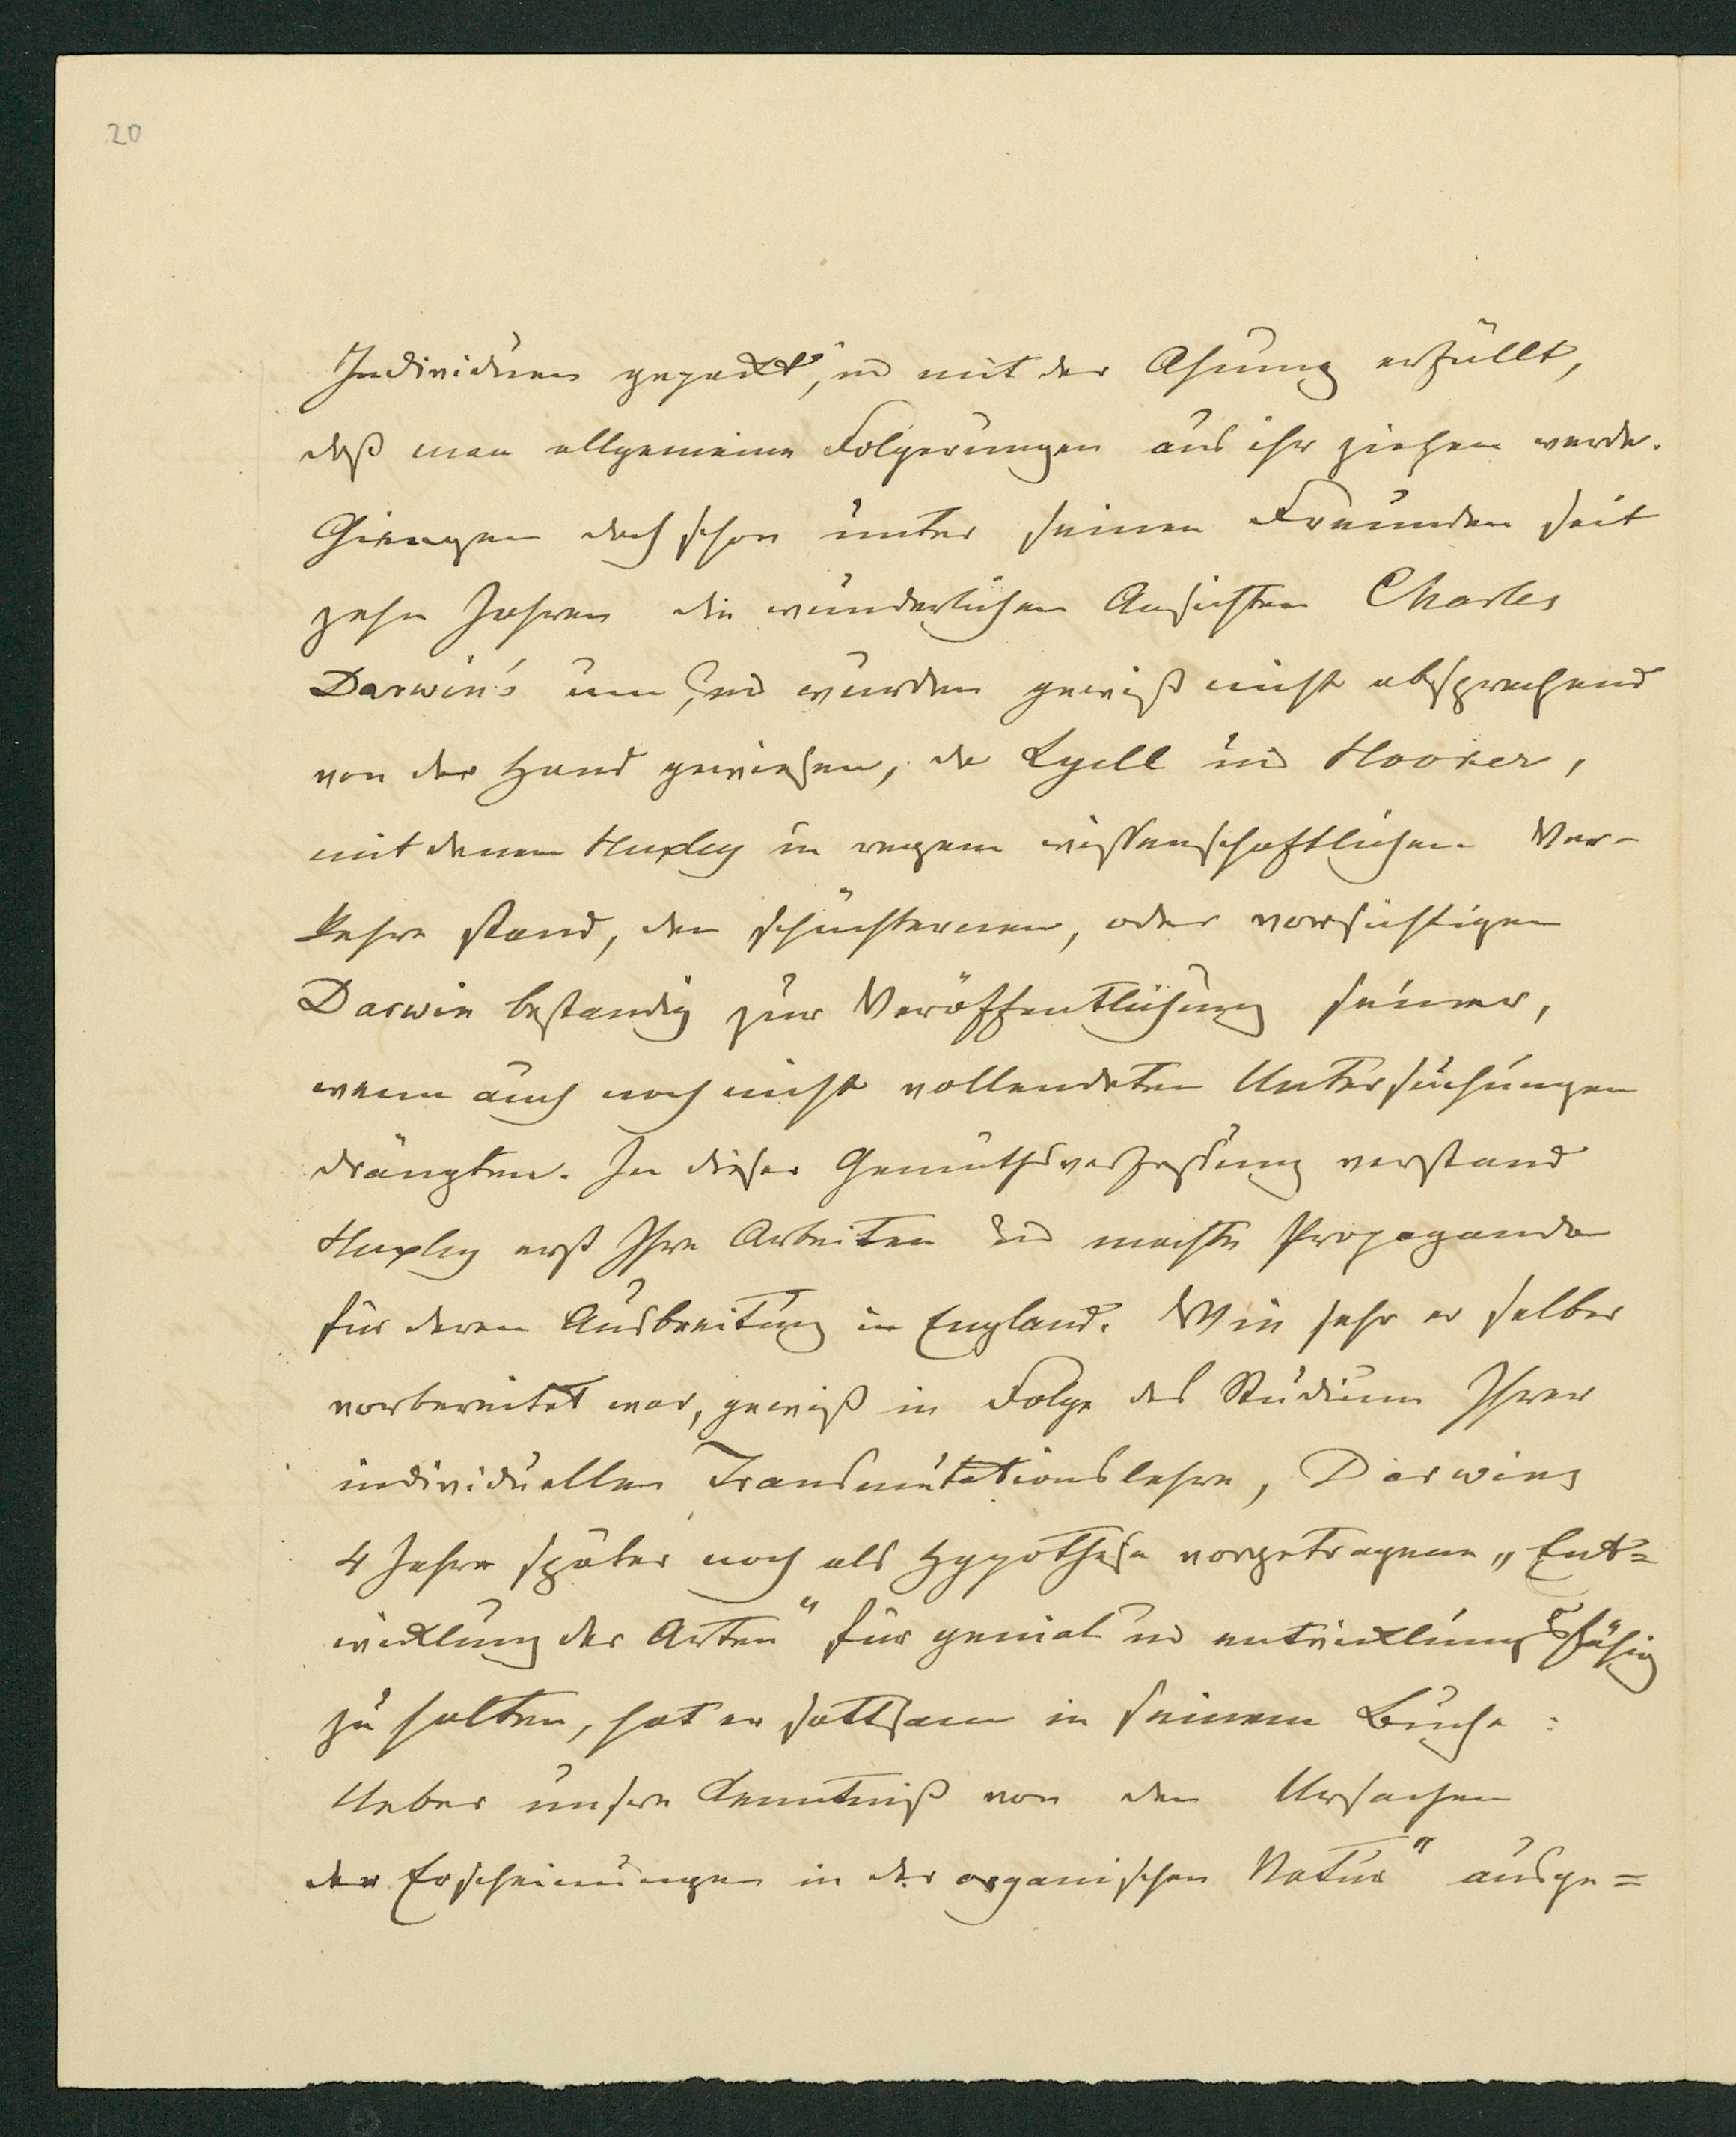 20
Individuen gepackt, und mit der Ahnung erfüllt,
daß man allgemeine Folgerungen aus ihr ziehen werde.
Giengen doch schon unter seinen Freunden seit
zehn Jahren die wunderlichen Ansichten Charles
Darwin's um, und wurden gewiß nicht absprechend
von der Hand gewiesen, da Lyell und Hooker,
mit denen Huxley in regem wissenschaftlichen Ver-
kehre stand, den schüchternen, oder vorsichtigen
Darwin bestandig zur Veröffentlichung seiner,
wenn auch noch nicht vollendeten Untersuchungen
drängten. In dieser Gemüthsverfassung verstand
Huxley erst Ihre Arbeiten und machte Propaganda
für deren Ausbreitung in England. Wie sehr er selber
vorbereitet war, gewiß in Folge des Studium Ihrer
individuellen Transmutationslehre, Darwins
4 Jahre später noch als Hypothese vorgetragene „Ent=
wicklung der Arten" für genial und entwicklungsfähig
zu halten, hat er sattsam in seinem Buche:
Ueber unsere Kenntniß von den Ursachen
der Erscheinungen in der organischen Natur" ausge=